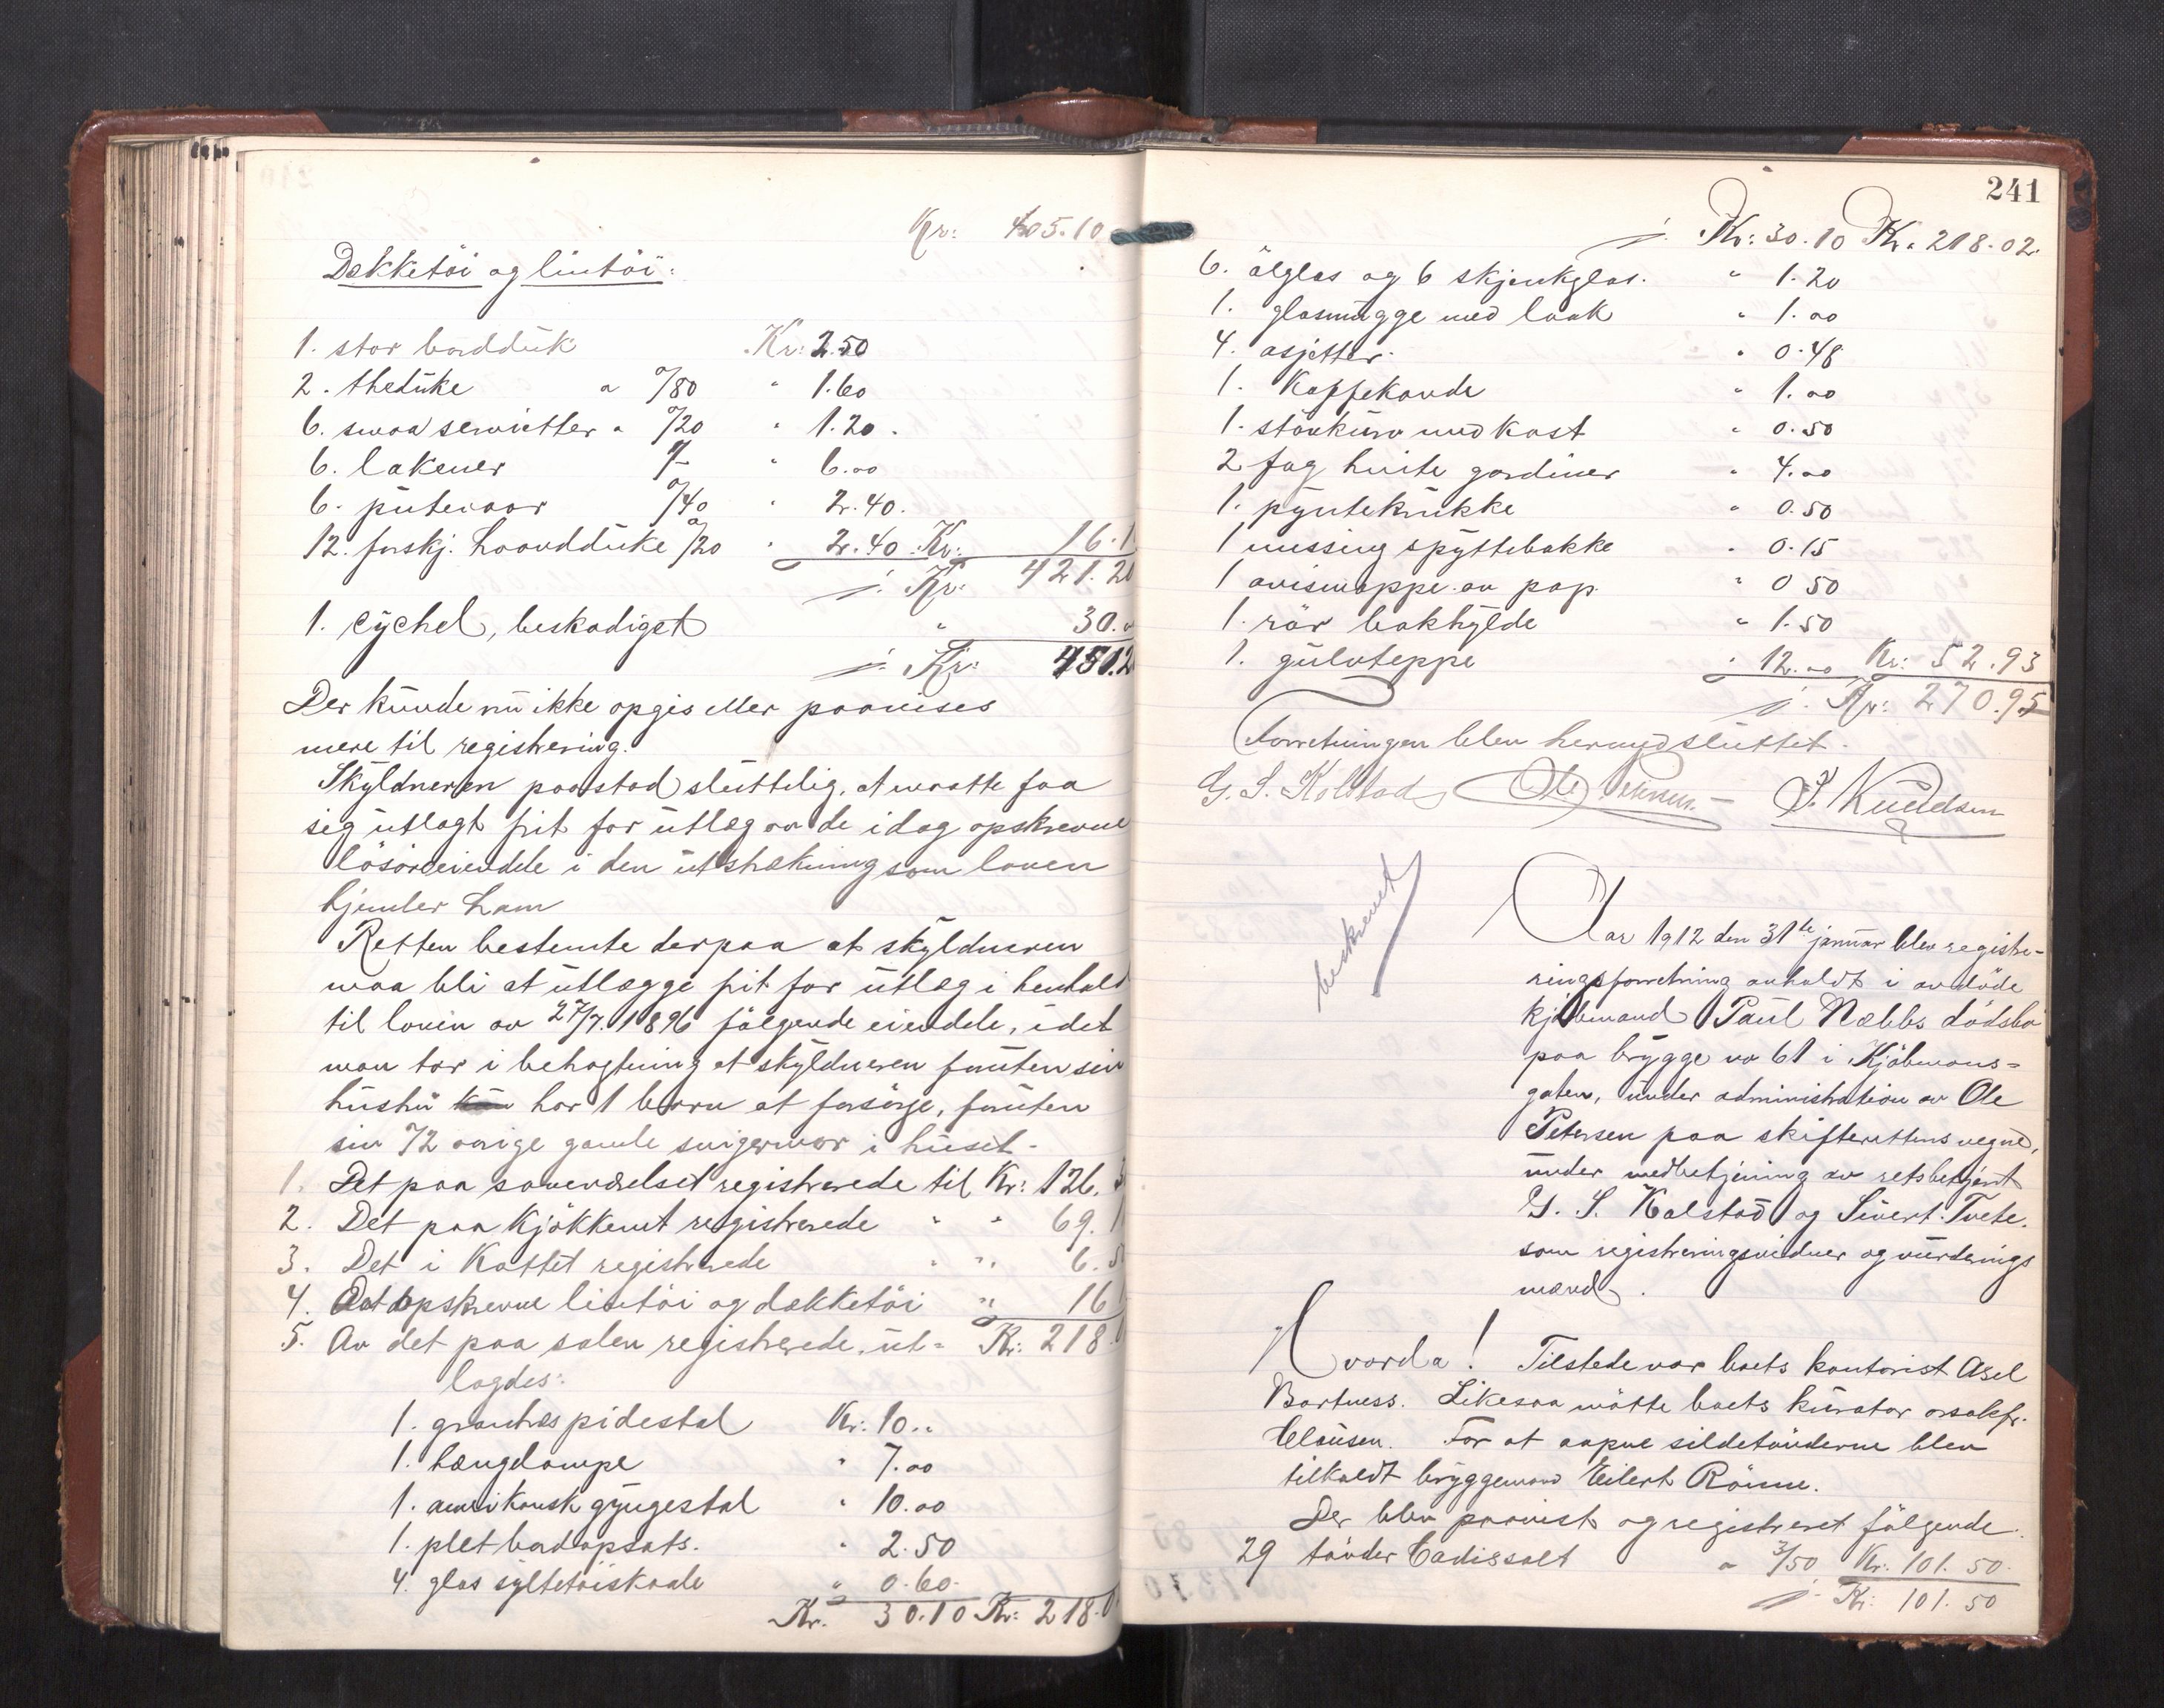 Kr: 405.10
Dekketöi og lintöi:
1. stor borddük Kr: 2.50
2. thedüke a 0/80 " 1.60
6. smaa servietter a 0/20 " 1.20.
6. lakener 1/- " 6.00
6. pütevaar 0/40 " 2.40.
12. forskj. haanddüke 0/20 " 2.40 Kr: 16.1
i. Kr: 421.20
1. cychel, beskadiget " 30.0
i. Kr: 451.2
Der künde nü ikke opgis eller paavises
mere til registrering.
Skyldneren paastod slüttelig, at maatte faa
sig ütlagt frit for ütlæg av de idag opskrevne
lösöreeiendele i den ütstrækning som loven
hjemler ham
Retten bestemte derpaa at skyldneren
maa bli at ütlægge frit for ütlæg i henhold
til loven av 27/7. 1896 fölgende eiendele, idet
man tar i betragtning at skyldneren forüten sin
hüstrü har 1 barn at forsörge, forüten
sin 72 aarige gamle svigermor i hüset.
1. Det paa soveværelset registrerede til Kr: 126.
2. Det paa Kjökkenet registrerede " " 69.
3. Det i Kottet registrerede " " 6.5
4. Det opskrevne lintöi og dækketöi " 16
5. Av det paa salen registrerede, üt= Kr: 218.
lagdes:
1. grantræs pidestal Kr: 10..
1. hængelampe " 7.00
1. amrikansk gyngestol " 10.00
1. plet bordopsats. " 2.50
4. glas syltetöiskaale " 0.60.
Kr. 30.10 Kr: 218.0
241
i. Kr: 30.10 Kr. 218.02.
6. ölglas og 6 skjenkglas. " 1.20
1. glasmügge med laak " 1.00
4. asjetter. " 0.48
1. Kaffekande " 1.00
1. stövkürv med kost " 0.50
2 fag hvite gardiner " 4.00
1. pyntekrükke " 0.50
1 messing spyttebakke " 0.15
1 avismappe av pap " 0 50
1. rör bokhylde " 1.50
1. gülvteppe " 12.00 Kr: 52.93
i. Kr: 270.95
Forretningen blev hermed slüttet.
G. S. Kolstad Ole Petersen. J. Knüdsen
beskrevet
Aar 1912 den 31te janüar blev registre-
ringsforretning avholdt i avdöde
kjöbmand Paül Næbbs dödsbo
paa brygge no 61 i Kjöbmans=
gaten, ünder administration av Ole
Petersen paa skifterettens vegne,
ünder medbetjening av retsbetjent
G. S. Kolstad og Sivert Tvete.
som registreringsvidner og vürderings
mænd.
Hvorda! Tilstede var boets kontorist Axel
Bartness. Likesaa mötte boets kürator orsakfr.
Claüsen. For at aapne sildetönderne blev
tilkaldt bryggemand Eilert Rönne.
Der blev paavist og registreret fölgende:
29 tönder Cadissalt a 3/50 Kr: 101.50.
i. Kr: 101.50